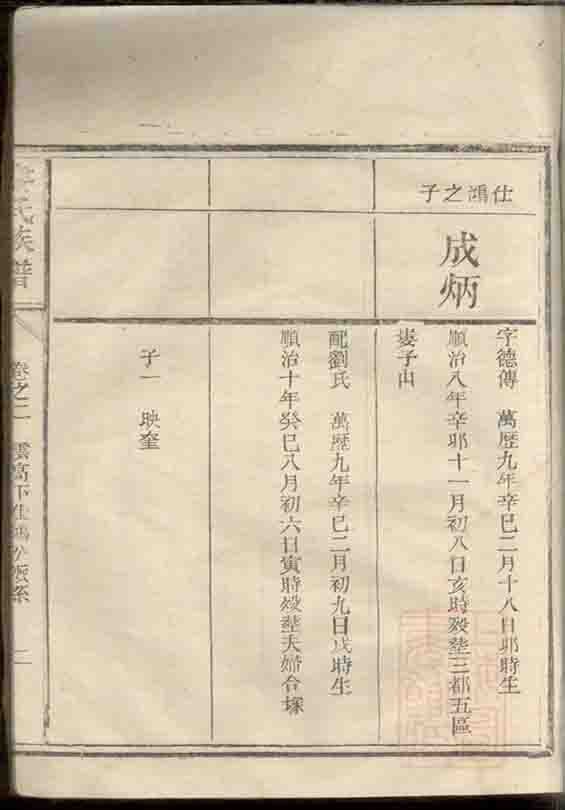 仕鴻之子
成炳
字德傳 萬歷九年辛巳二月十八日卯時生
順治八年辛卯十一月初八日亥時歿塟三都五區
婆子山
配劉氏 萬歷九年辛巳二月初九日戌時生
順治十年癸巳八月初六日寅時歿塟夫婦合塚
子一 映奎
氏族譜
卷之二 雲高下仕鴻公派系 二